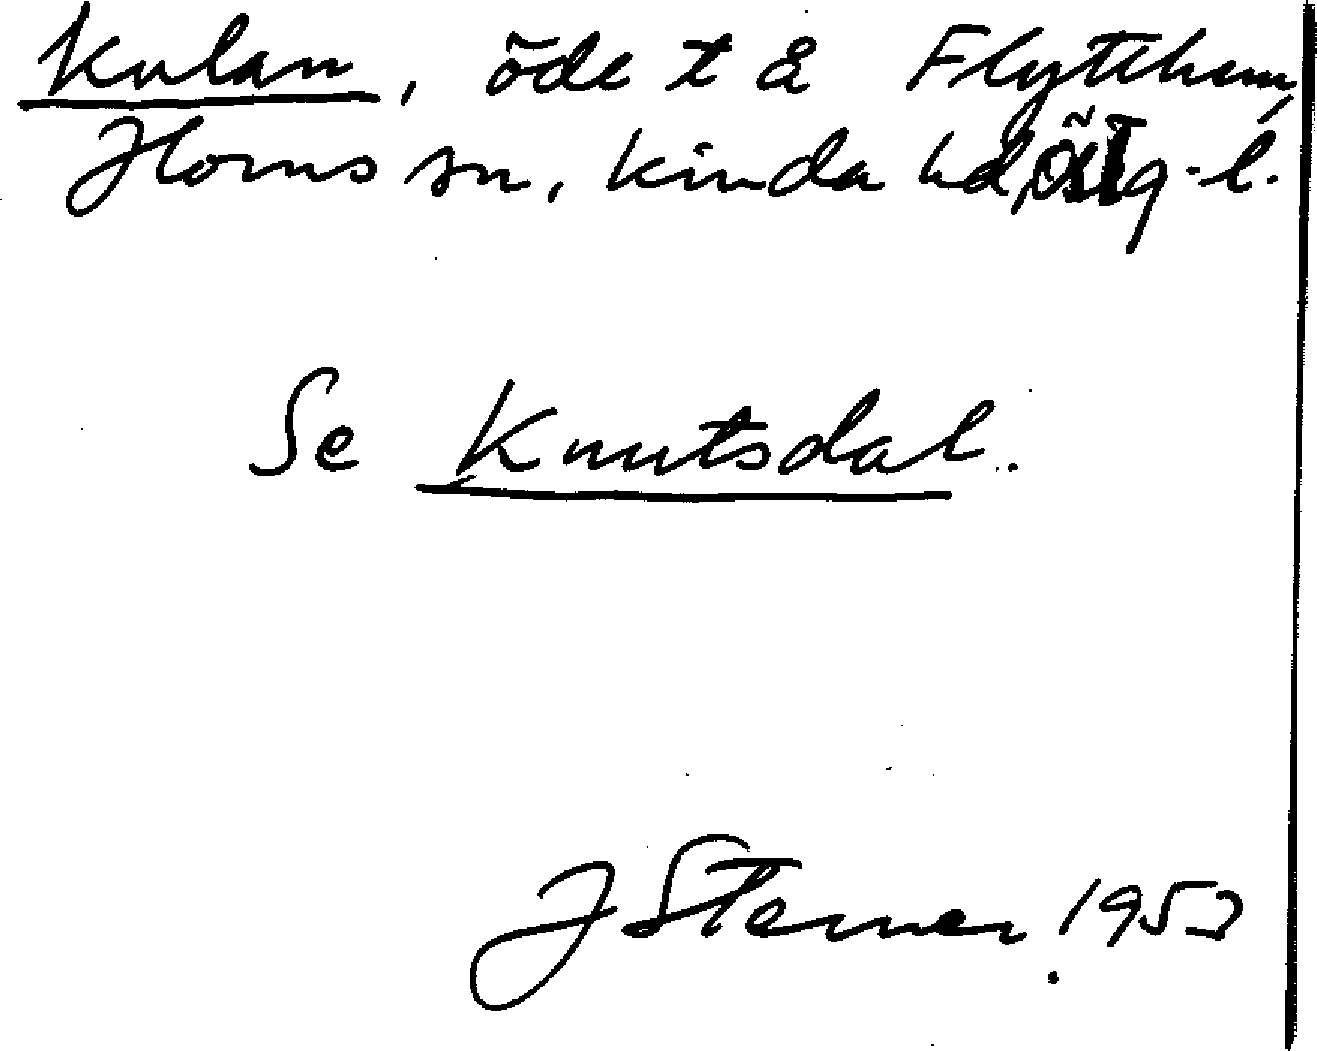 Kulan, öde t å Flytthem,
Horns sn, Kinda hd, Östg-l.
Se Knutsdal.
J Sterner. 1953